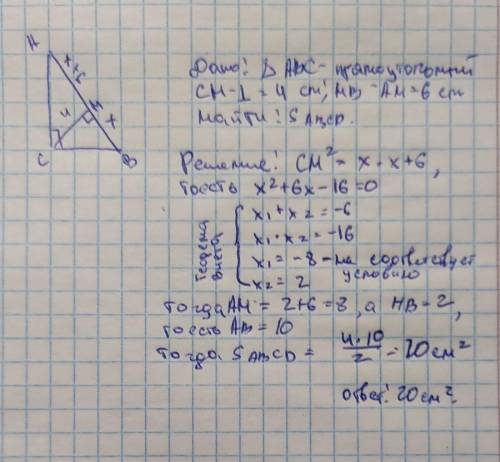 A
x+6
4
H
x
C
B
Дано: Δ ABC - прямоугольный
CH-⊥ = 4 cm, HB - AH = 6 cm
Найти: S ABCD.
Решение: CH² = x · x+6,
тоесть x²+6x-16=0
Теорема Виета
x₁ + x₂ = -6
x₁ · x₂ = -16
x₁ = -8 - не соответствует условию
x₂ = 2
тогда AH = 2+6=8, а HB = 2,
тоесть AB = 10
Тогда S ABCD = 4·10/2 = 20 см²
Ответ: 20 см².